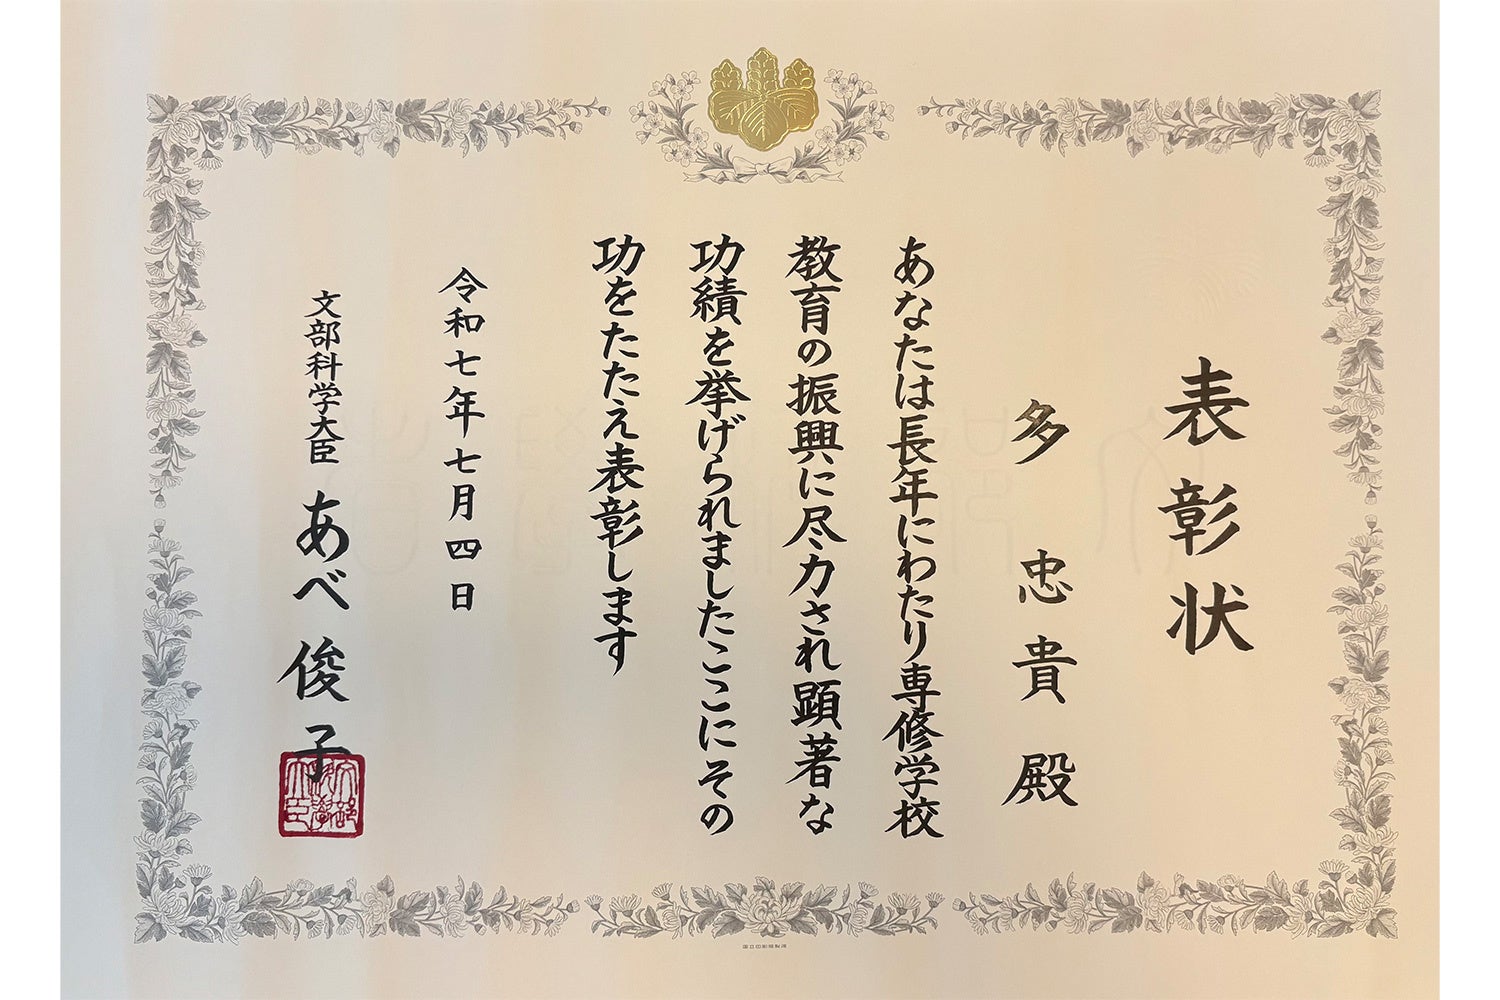 表彰状
多 忠貴 殿
あなたは長年にわたり専修学校
教育の振興に尽力され顕著な
功績を挙げられましたここにその
功をたたえ表彰します
令和七年七月四日
文部科学大臣 あべ 俊子
文部科学大臣
国立印刷局製造